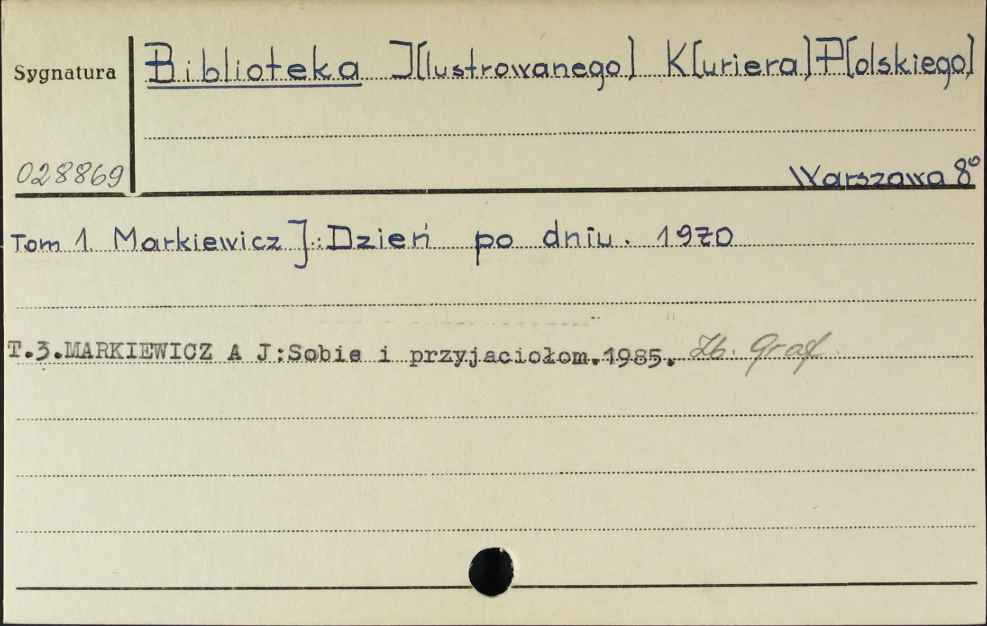 Sygnatura
Biblioteka I[lustrowanego] K[uriera] P[olskiego]
028869
Warszawa 8°
Tom 1 Markiewicz J.: Dzień po dniu. 1970
T.3.MARKIEWICZ A J:Sobie i przyjaciołom.1985. Zb. Graf